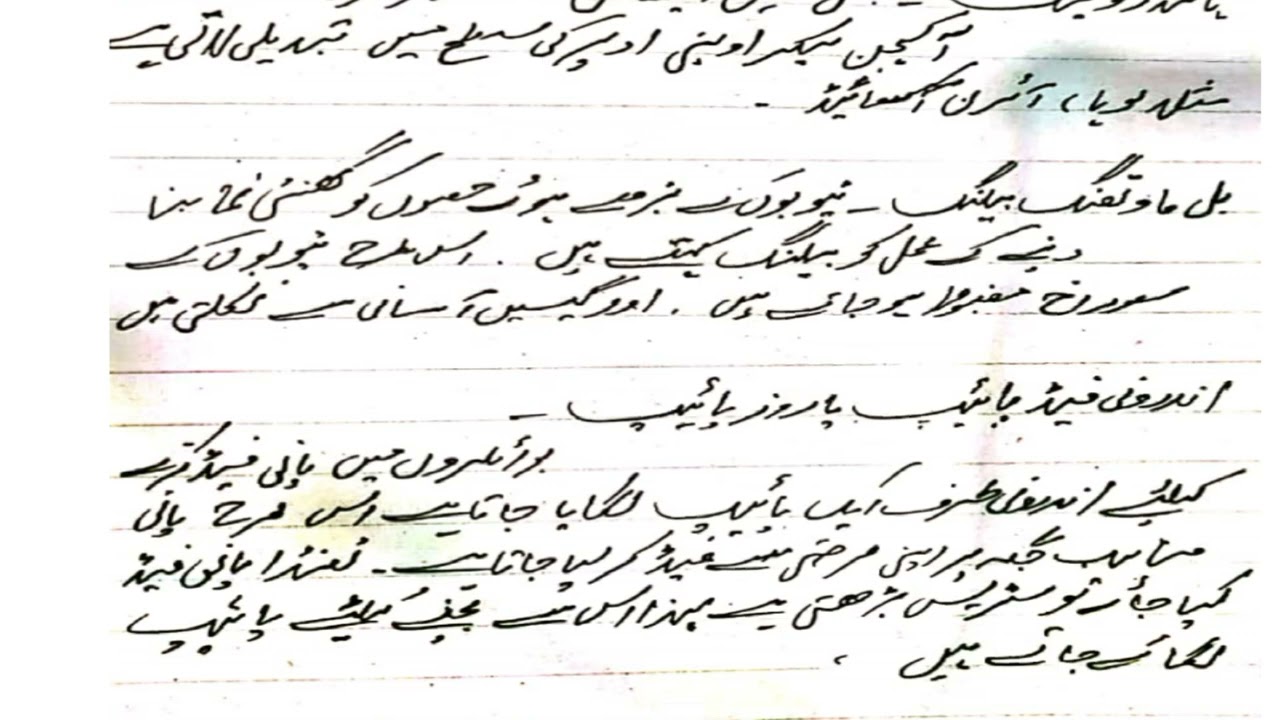 آکسیجن لیکر اوپنی اوپر کی سطح میں تبدیلی لاتی ہے
مثلاً لوہا، آئرن آکسائیڈ -
بل ماؤتھنگ بیلنگ - ٹیوبوں کے بڑھے ہوئے حصوں کو گھنٹی نما بنا
دینے کے عمل کو بیلنگ کہتے ہیں . اس طرح ٹیوبوں کے
سوراخ مضبوط ہو جاتے ہیں . اور گیسیں آسانی سے نکلتی ہیں
اندرونی فیڈ پائیپ یا روز پائیپ -
بوائلروں میں پانی فیڈ کرنے
کیلئے اندرونی طرف ایک پائیپ لگایا جاتا ہے اس طرح پانی
مناسب جگہ پر اپنی مرضی سے فیڈ کر لیا جاتا ہے - ٹھنڈا پانی فیڈ
کیا جائے تو سٹریس بڑھتی ہے لہذا اس سے بچنے کیلئے پائیپ
لگائے جاتے ہیں